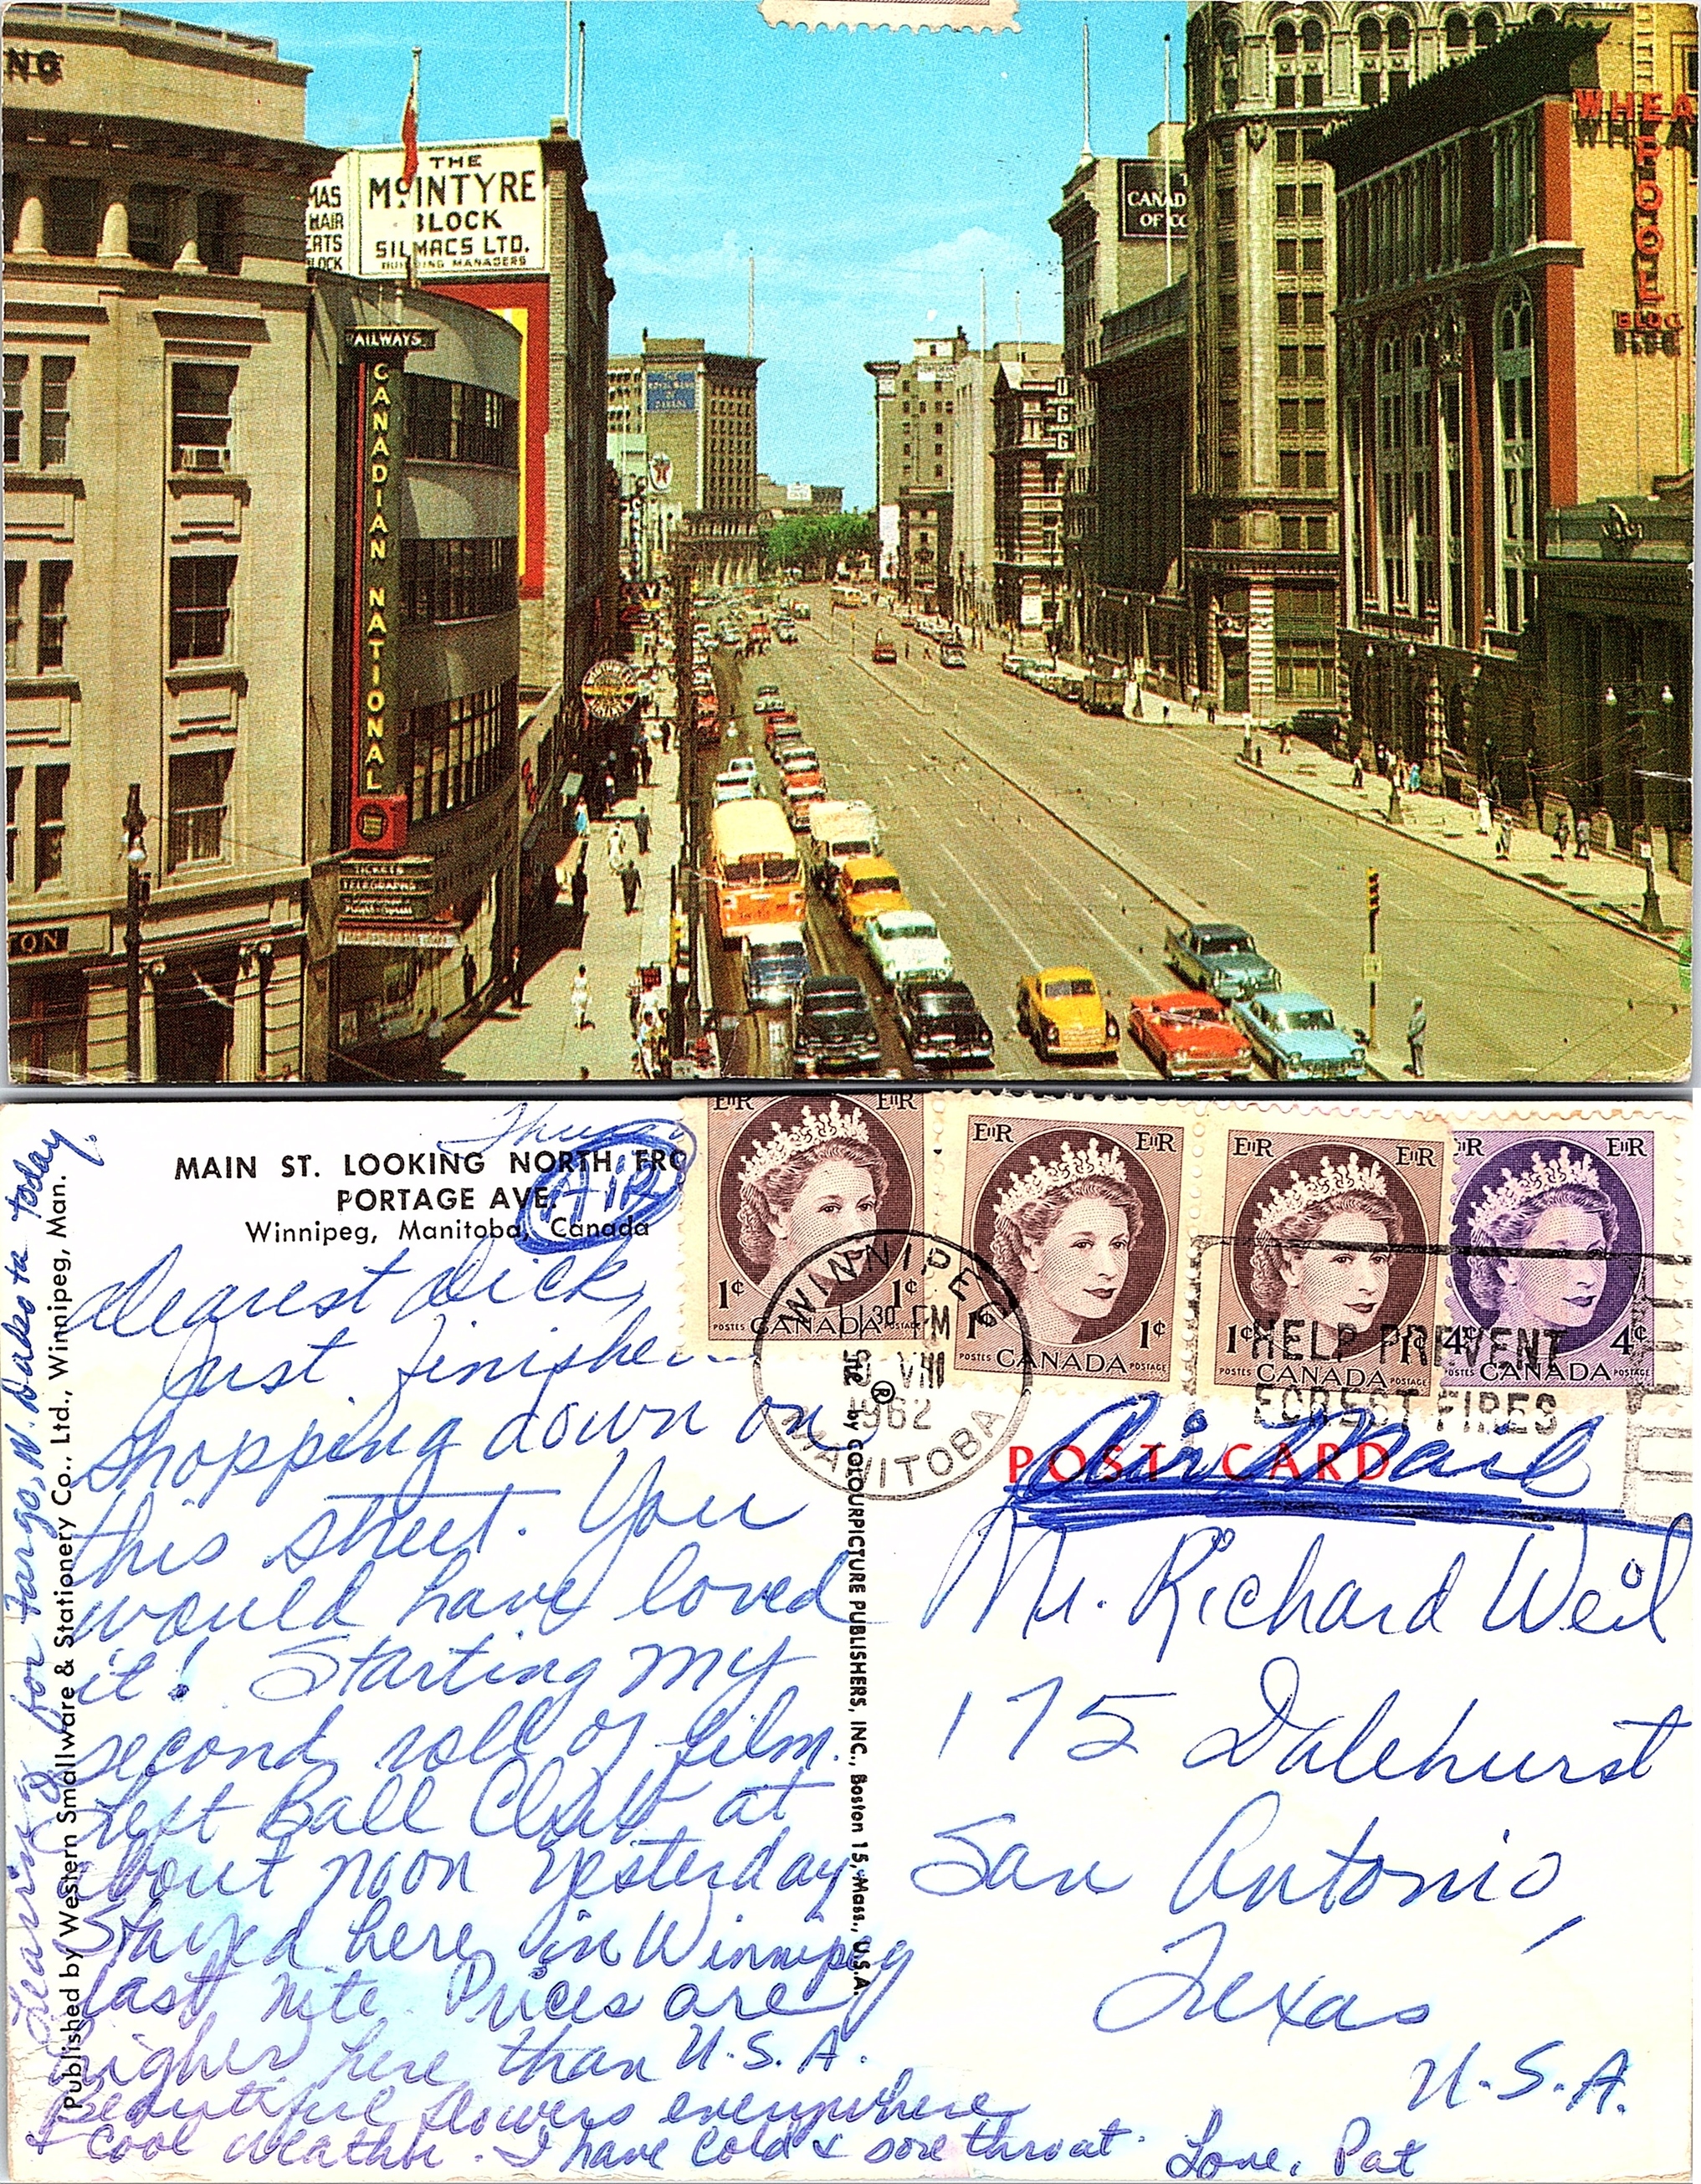 NG
THE
McINTYRE
BLOCK
SILMACS LTD.
BUILDING MANAGERS
MAS
HAIR
LOCK
RAILWAYS
CANADIAN NATIONAL
TICKETS
TELEGRAPHS
TON
THE
ROYAL BANK
OF
CANADA
UGG
CANAD
OF CO
WHEA
WHEA
POOL
BLDG
MAIN ST. LOOKING NORTH FRO
PORTAGE AVE.
Winnipeg, Manitoba, Canada
Thurs.
AIR
Dearest Dick,
Just finished
shopping down on
this street. You
would have loved
it! Starting my
second roll of film.
Left Ball Club at
about noon yesterday
Stayed here in Winnipeg
last nite. Prices are
higher here than U.S.A.
Beautiful flowers everywhere
& cool weather. I have cold & sore throat.
Love, Pat
Leaving for Fargo, N. Dakota today.
Published by Western Smallware & Stationery Co., Ltd., Winnipeg, Man.
by COLOURPICTURE PUBLISHERS, INC., Boston 15, Mass., U.S.A.
EIIR EIIR
1¢ 1¢
POSTES CANADA POSTAGE
EIIR EIIR
1¢ 1¢
POSTES CANADA POSTAGE
EIIR EIIR
1¢ 1¢
POSTES CANADA POSTAGE
IIR EIIR
4¢ 4¢
CANADA POSTAGE
WINNIPEG
30 PM
VIII
1962
MANITOBA
HELP PREVENT
FOREST FIRES
POST CARD
Air Mail
Mr. Richard Weil
175 Dalehurst
San Antonio,
Texas
U.S.A.